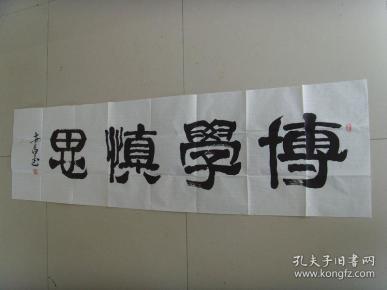 博學慎思
孔夫子旧书网
www.kongfz.com